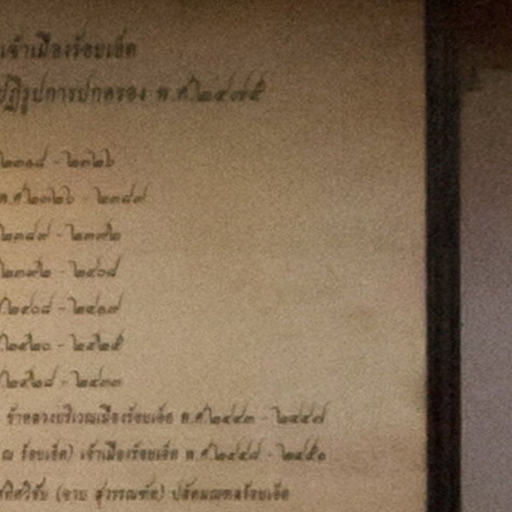 เจ้าเมืองร้อยเอ็ด
ปฏิรูปการปกครอง พ.ศ.๒๔๗๕
๒๓๑๘ - ๒๓๒๖
พ.ศ.๒๓๒๖ - ๒๓๘๙
๒๓๘๙ -
- ๒๔๐๘
๒๔๐๘ - ๒๔๑๙
๒๔๒๐ - ๒๔๒๕
- ๒๔๓๓
ข้าหลวงบริเวณเมืองร้อยเอ็ด พ.ศ.๒๔๔๓ - ๒๔๔๗
ณ ร้อยเอ็ด) เจ้าเมืองร้อยเอ็ด พ.ศ.๒๔๔๘ - ๒๔๕๐
สุวรรณทัต) ปลัดมณฑลร้อยเอ็ด